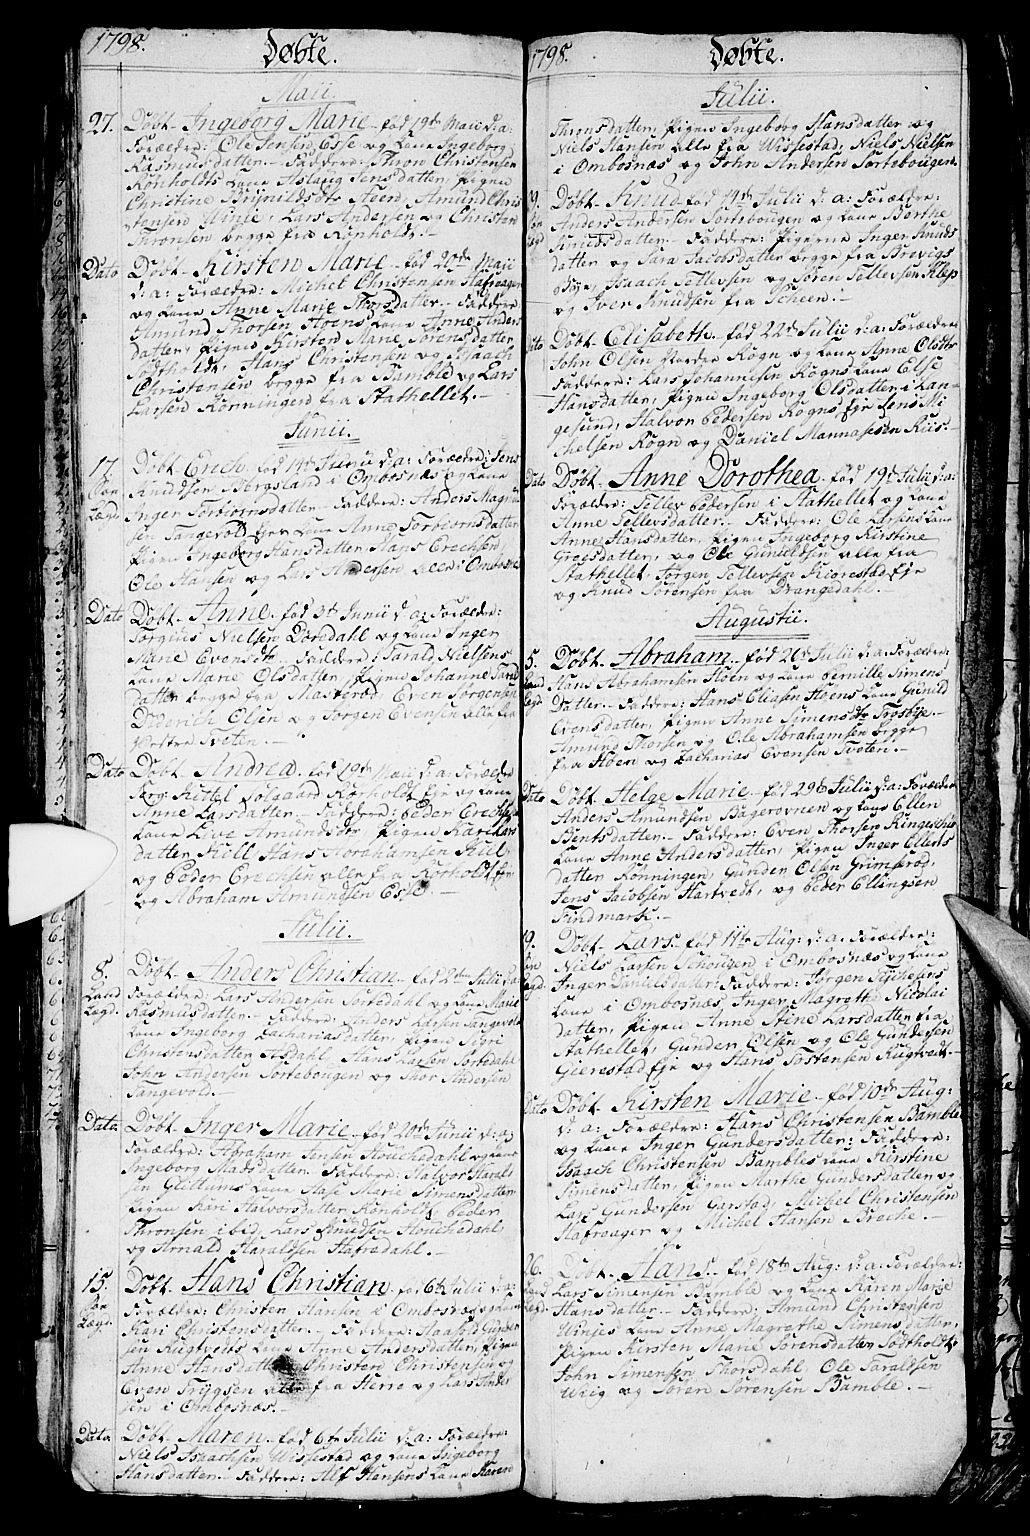 1798.
Døbte.
Maii
27. Døbt Ingeborg Marie fød 19de Maii d: a:
Forældre: Ole Jensen Esse og Kone Ingeborg
Rasmusdatter. Faddere: Thron Christensen
Rönholdts Kone Aslaug Jensdatter, Pigen
Christine Brynildsdtr Feen, Amund Chris
tensen Winje, Lars Andersen og Christen
Thronsen begge fra Rönholdt.
Dato Døbt Kirsten Marie fød 20de Maii
d: a: Forældre: Michel Christensen Hafsager
og Kone Anne Marie Thorsdatter. Faddere
Amund Thorsen Kone Anne Anders
datter, Pigen Kirsten Marie Sörensdatter
Hans Christensen og Isaach
Christensen begge fra Bamble og Lars
Larsen Rönningen fra Stathellet.
Junii.
17. Døbt Erich fød 14de Junii d: a: Forældre: Jens
Knudsen Bergsland i Ombosnæs og Kone
Inger Torbiornsdatter. Faddere: Anders Magnu
sen Tangevold Kone Anne Torbiornsdatter
Pigen Ingeborg Hansdatter, Hans Erechsen
Ole Hansen og Lars Andersen alle i Ombosnæs
Dato Døbt Anne fød 3de Junii d: a: Forældre:
Torgius Nielsen Dörsdahl og Kone Inger
Marie Evensdtr. Faddere: Tarald Nielsens
Kone Marie Olsdatter, Pigen Johanne
datter begge fra Masteröd, Even Jörgensen
Olsen og Jörgen Evensen alle fra
Vestre Tveten.
Dato Døbt Andrea fød 19de Maii d: a: Forældre
Kittel Solgaard Rörholdt og Kone
Anne Larsdatter. Faddere: Peder Erechsens
Kone Live Amundsdtr, Pigen Kari Lars
datter Kiil, Hans Abrahamsen Kiil
og Peder Erechsen alle fra Rörholdt
og Abraham Amundsen Esse.
Julii.
8. Døbt Anders Christian fød 2den Julii d: a:
Land Forældre: Lars Andersen Sortedahl og Kone Marie
Rasmusdatter. Faddere: Anders Larsen Tangevold
Kone Ingeborg Zachariasdatter, Pigen Sigri
Christensdatter Asdahl, Hans Larsen Sortedahl
John Andersen Sortebougen og Thor Andersen
Tangevold.
Dato. Døbt Inger Marie fød 20de Junii d: a:
Forældre: Abraham Jensen Houchedahl og Kone
Ingeborg Madsdatter. Faddere: Halvor Harald
sen Glittums Kone Aase Marie Simensdatter
Pigen Kari Halvorsdatter Rönholt, Peder
Thronsen ibid, Lars Knudsen Houchedahl
og Arnold Haraldsen Hafredahl.
15. Døbt Hans Christian fød 6te Julii d: a:
Forældre: Christen Hansen i Ombosnæs og Kone
Kari Christensdatter. Faddere:
sen Rugtvedts Kone Anne Andersdatter, Pigen
Anne Hansdatter, Christen Christensen og
Even Trygsen alle fra Herre og Lars Ander
sen i Ombosnæs.
Dato. Døbt Maren fød 6te Julii d: a: Forældre:
Niels Isaachsen Wissestad og Kone Ingeborg
Hansdatter. Faddere: Alf Hansens Kone Karen
1798.
Døbte.
Julii.
Thronsdatter, Pigen Ingeborg Hansdatter og
Niels Hansen alle fra Wissestad, Niels Nielsen
i Ombosnæs og John Andersen Sortebougen.
Døbt Knud fød 14de Julii d: a: Forældre:
Anders Andersen Sortebougen og Kone Berthe
Knudsdatter. Faddere: Pigerne Inger Knuds
datter og Sara Jacobsdatter begge fra Brevigs
Bye, Isaach Tollevsen og Sören Tollevsen Klep
og Iver Knudsen fra Scheen.
Dato Døbt Elisabeth fød 22de Julii d: a: Forældre
John Olsen Nordre Rogn og Kone Anne Olsdtr
Faddere: Lars Johannisen Rogns Kone Else
Hansdatter, Pigen Ingeborg Olsdatter i Lan
gesund, Halvor Pedersen Rogns, Jens Mi
chelsen Rogn og Daniel Mannasesen Riis.
Dato Døbt Anne Dorothea fød 19de Julii d: a:
Forældre: Tollev Pedersen i Stathellet og Kone
Anne Tellevsdatter. Faddere: Ole Larsens Kone
Anne Hansdatter, Pigen Ingeborg Kirstine
Greesdatter, og Ole Gunildsen alle fra
Stathellet, Jörgen Tollevsen Kiörestad
og Knud Sörensen fra Drangedahl.
Augustii.
5. Døbt Abraham fød 20de Julii d: a: Forældre:
Hans Abrahamsen Höen og Kone Pernille Simens
Datter. Faddere: Hans Eliasen Höens Kone Gunild
Evensdatter, Pigen Anne Simensdtr Trosbye,
Amund Thorsen og Ole Abrahamsen begge
fra Höen og Zacharias Evensen Tvoten.
Dato Døbt Helge Marie fød 29de Julii d: a: Forældre
Anders Amundsen Bagerovnen og Kone Ellen
Bentsdatter. Faddere: Even Thorsen Ringesthues
Kone Anne Andersdatter, Pigen Inger Ellens
datter Rönningen, Gunder Olsen Grimsröd,
Jens Jacobsen Hartvedt, og Peder Ellingsen
Findmark.
Døbt Lars fød 11te Aug: d: a: Forældre:
Niels Larsen Schougen i Ombosnæs og Kone
Inger Danielsdatter: Faddere: Jörgen
Kone i Ombosnæs Inger Magrethe Nicolai
datter, Pigen Anne Stine Larsdatter fra
Stathellet, Gunder Olsen og Ole Gundersen
Gierestad og Hans Tostensen Rugtvedt.
Dato Døbt Kirsten Marie fød 10de Aug:
d: a: Forældre: Hans Christensen Bamble
og Kone Inger Gundersdatter: Faddere:
Isaach Christensen Bambles Kone Kirstine
Simensdatter, Pigen Marthe Gundersdatter og
Lars Gundersen Garstad, Michel Christensen
Hafsager og Michel Hansen Breche.
26. Døbt Hans fød 18de Aug: d: a: Forældre:
Lars Simensen Bamble og Kone Karen Marie
Hansdatter. Faddere: Amund Christensen
Winjes Kone Anne Magrethe Simensdatter,
Pigen Kirsten Marie Sörensdatter
John Simensen Thorsdahl, Ole Taraldsen
Wiig og Sören Sörensen Bamble.